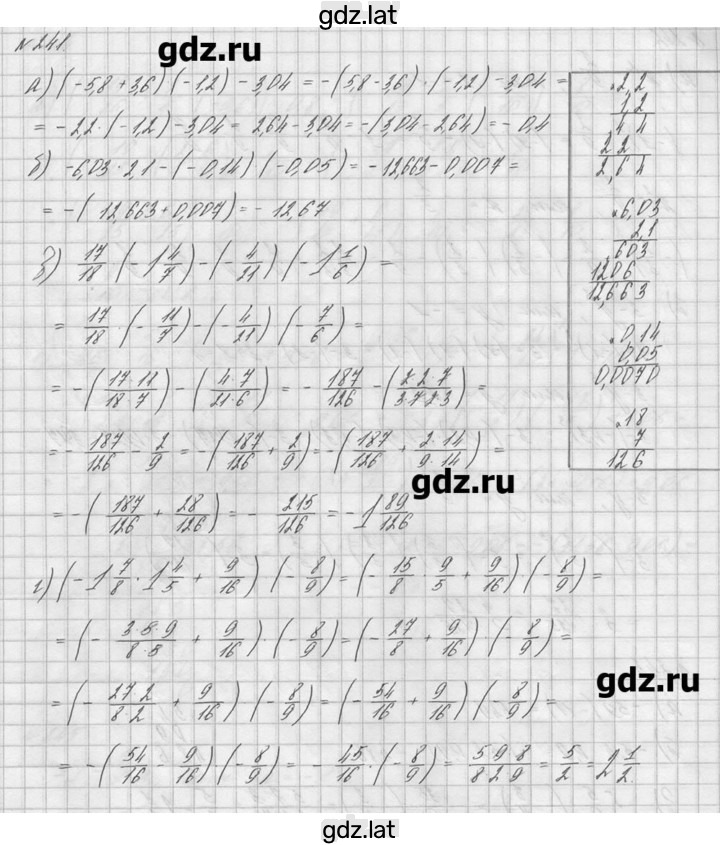 gdz.lat
№ 241.
gdz.lat
а) (-5,8 + 3,6) (-1,2) - 3,04 = -(5,8 - 3,6) · (-1,2) - 3,04 =
= -2,2 · (-1,2) - 3,04 = 2,64 - 3,04 = -(3,04 - 2,64) = -0,4
б) -6,03 · 2,1 - (-0,14) (-0,05) = -12,663 - 0,007 =
= -(12,663 + 0,007) = -12,67
в) 17/18 (-1 4/7) - (-4/21) (-1 1/6) =
= 17/18 · (-11/7) - (-4/21) (-7/6) =
= -(17·11/18·7) - (4·7/21·6) = -187/126 - (2·2·7/3·7·2·3) =
= -187/126 - 2/9 = -(187/126 + 2/9) = -(187/126 + 2·14/9·14) =
= -(187/126 + 28/126) = -215/126 = -1 89/126
г) (-1 7/8 · 1 4/5 + 9/16) (-8/9) = (-15/8 · 9/5 + 9/16) (-8/9) =
= (-3·5·9/8·5 + 9/16) · (-8/9) = (-27/8 + 9/16) · (-8/9) =
= (-27·2/8·2 + 9/16) · (-8/9) = (-54/16 + 9/16) (-8/9) =
= -(54/16 - 9/16) (-8/9) = -45/16 · (-8/9) = 5·9·8/8·2·9 = 5/2 = 2 1/2.
×2,2
1,2
44
22
2,64
×6,03
2,1
603
1206
12,663
×0,14
0,05
0,0070
×18
7
126
gdz.lat
gdz.lat
gdz.lat